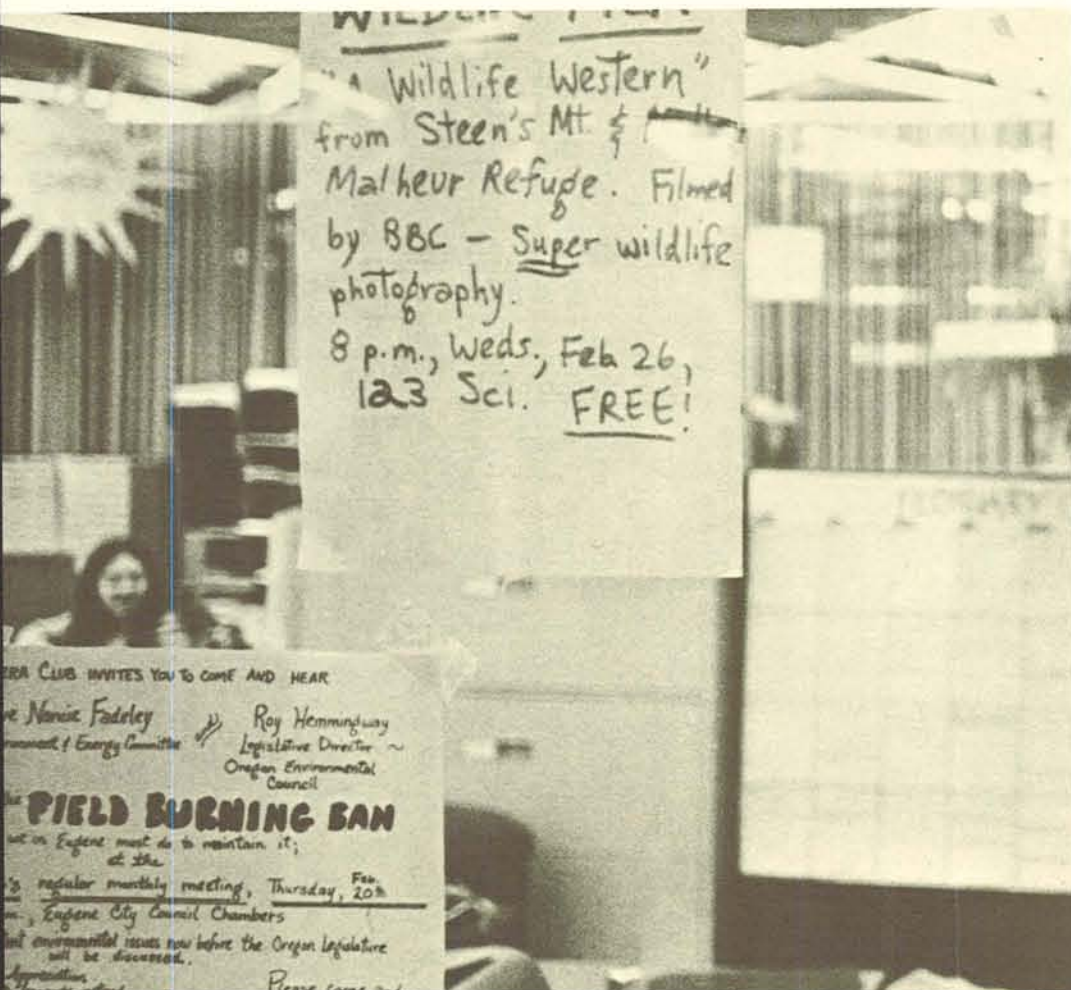 WILDLIFE FILM
"A Wildlife Western"
from Steen's Mt. &
Malheur Refuge. Filmed
by BBC – Super wildlife
photography.
8 p.m., Weds., Feb 26,
123 Sci. FREE!
ERA CLUB INVITES YOU TO COME AND HEAR
Nancie Fadeley
Roy Hemmingway
& Energy Committee
Legislative Director ~
Oregon Environmental
Council
FIELD BURNING BAN
in Eugene must do to maintain it;
at the
's regular monthly meeting, Thursday, Feb. 20th
Eugene City Council Chambers
environmental issues now before the Oregon Legislature
will be discussed.
Please come and